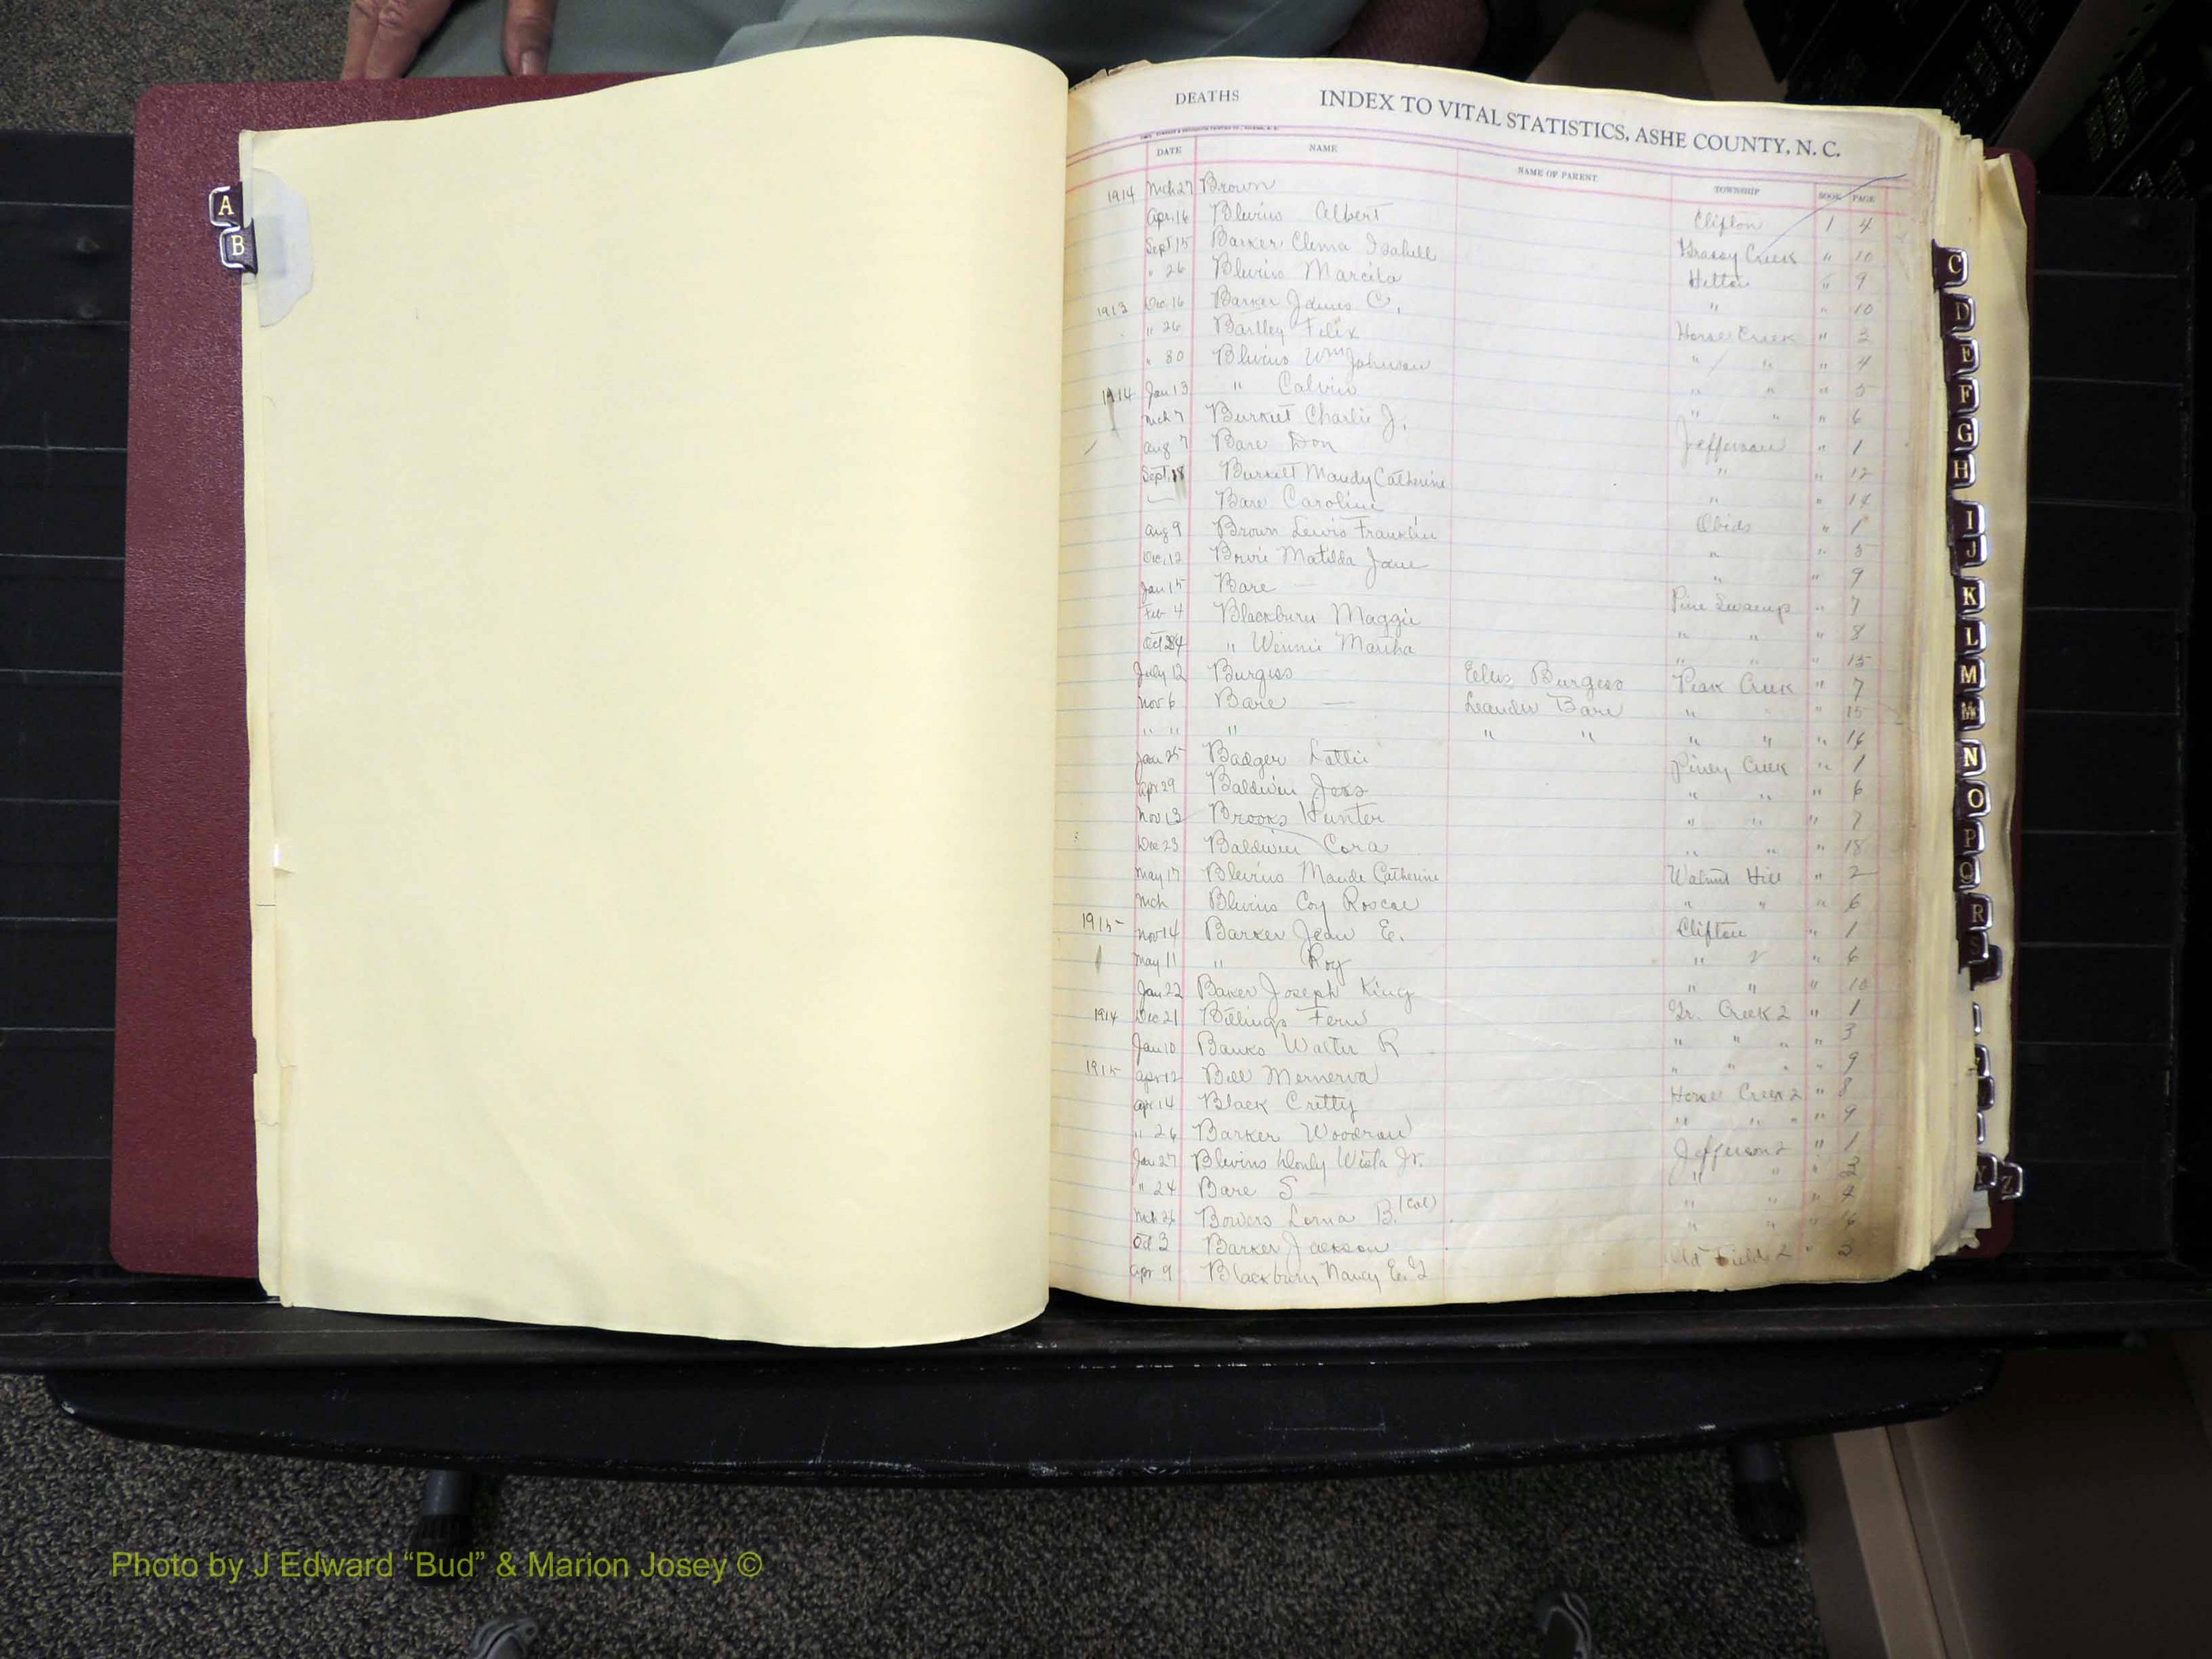 DEATHS INDEX TO VITAL STATISTICS, ASHE COUNTY, N. C.
DATE NAME NAME OF PARENT TOWNSHIP BOOK PAGE
1914 Mch 27 Brown Clifton 1 4
Apr. 16 Blevins Albert Grassy Creek " 10
Sept 15 Barker Clema Isabell Helton " 9
" 26 Blevins Marcila " " 10
1913 Dec. 16 Barker James C. Horse Creek " 3
" 26 Bartley Felix " " " 4
" 30 Blevins Wm Johnson " " " 5
1914 Jan 13 " Calvin " " " 6
Mch 7 Burket Charlie J. Jefferson " 1
Aug 7 Bare Don " " 12
Sept. 18 Burkett Maudy Catherine " " 14
Bare Caroline Obids " 1
Aug 9 Brown Lewis Franklin " " 5
Dec. 12 Bowie Matilda Jane " " 9
Jan 15 Bare — Pine Swamp " 7
Feb 4 Blackburn Maggie " " " 8
Oct 24 " Winnie Martha " " " 15
July 12 Burgess Burgess Peak Creek " 7
Nov 6 Bare — Leander Bare " " 15
" " " " " " " " 16
Jan 25 Badger Lottie Piney Creek " 1
Apr 29 Baldwin Jess " " " 6
Nov 13 Brooks Hunter " " " 7
Dec 23 Baldwin Cora " " " 18
May 17 Blevins Maude Catherine Walnut Hill " 2
Mch Blevins Coy Roscoe " " " 6
1915 Nov 14 Barker Jean E. Clifton " 1
May 11 " Roy " 2 " 6
Jan 22 Baker Joseph King " " " 10
1914 Dec 21 Billings Fern Gr. Creek 2 " 1
Jan 10 Banks Walter R " " " 3
1915 Apr 12 Bell Mernerva " " " " 9
Apr 14 Black Critty Horse Creek 2 " 8
" 26 Barker Woodrow " " " " 9
Jan 27 Blevins Wista Jr. Jefferson 2 " 1
" 24 Bare S — " " " 3
Mch 26 Bowers Lorna B. (Col) " " " 4
Oct 3 Barker Jackson " " "
Apr 9 Blackburn Nancy E. Old Fields 2 " 3
A
B
C
D
E
F
G
H
I
J
K
L
M
Mc
N
O
P
Q
R
S
Y
Z
Photo by J Edward “Bud” & Marion Josey ©